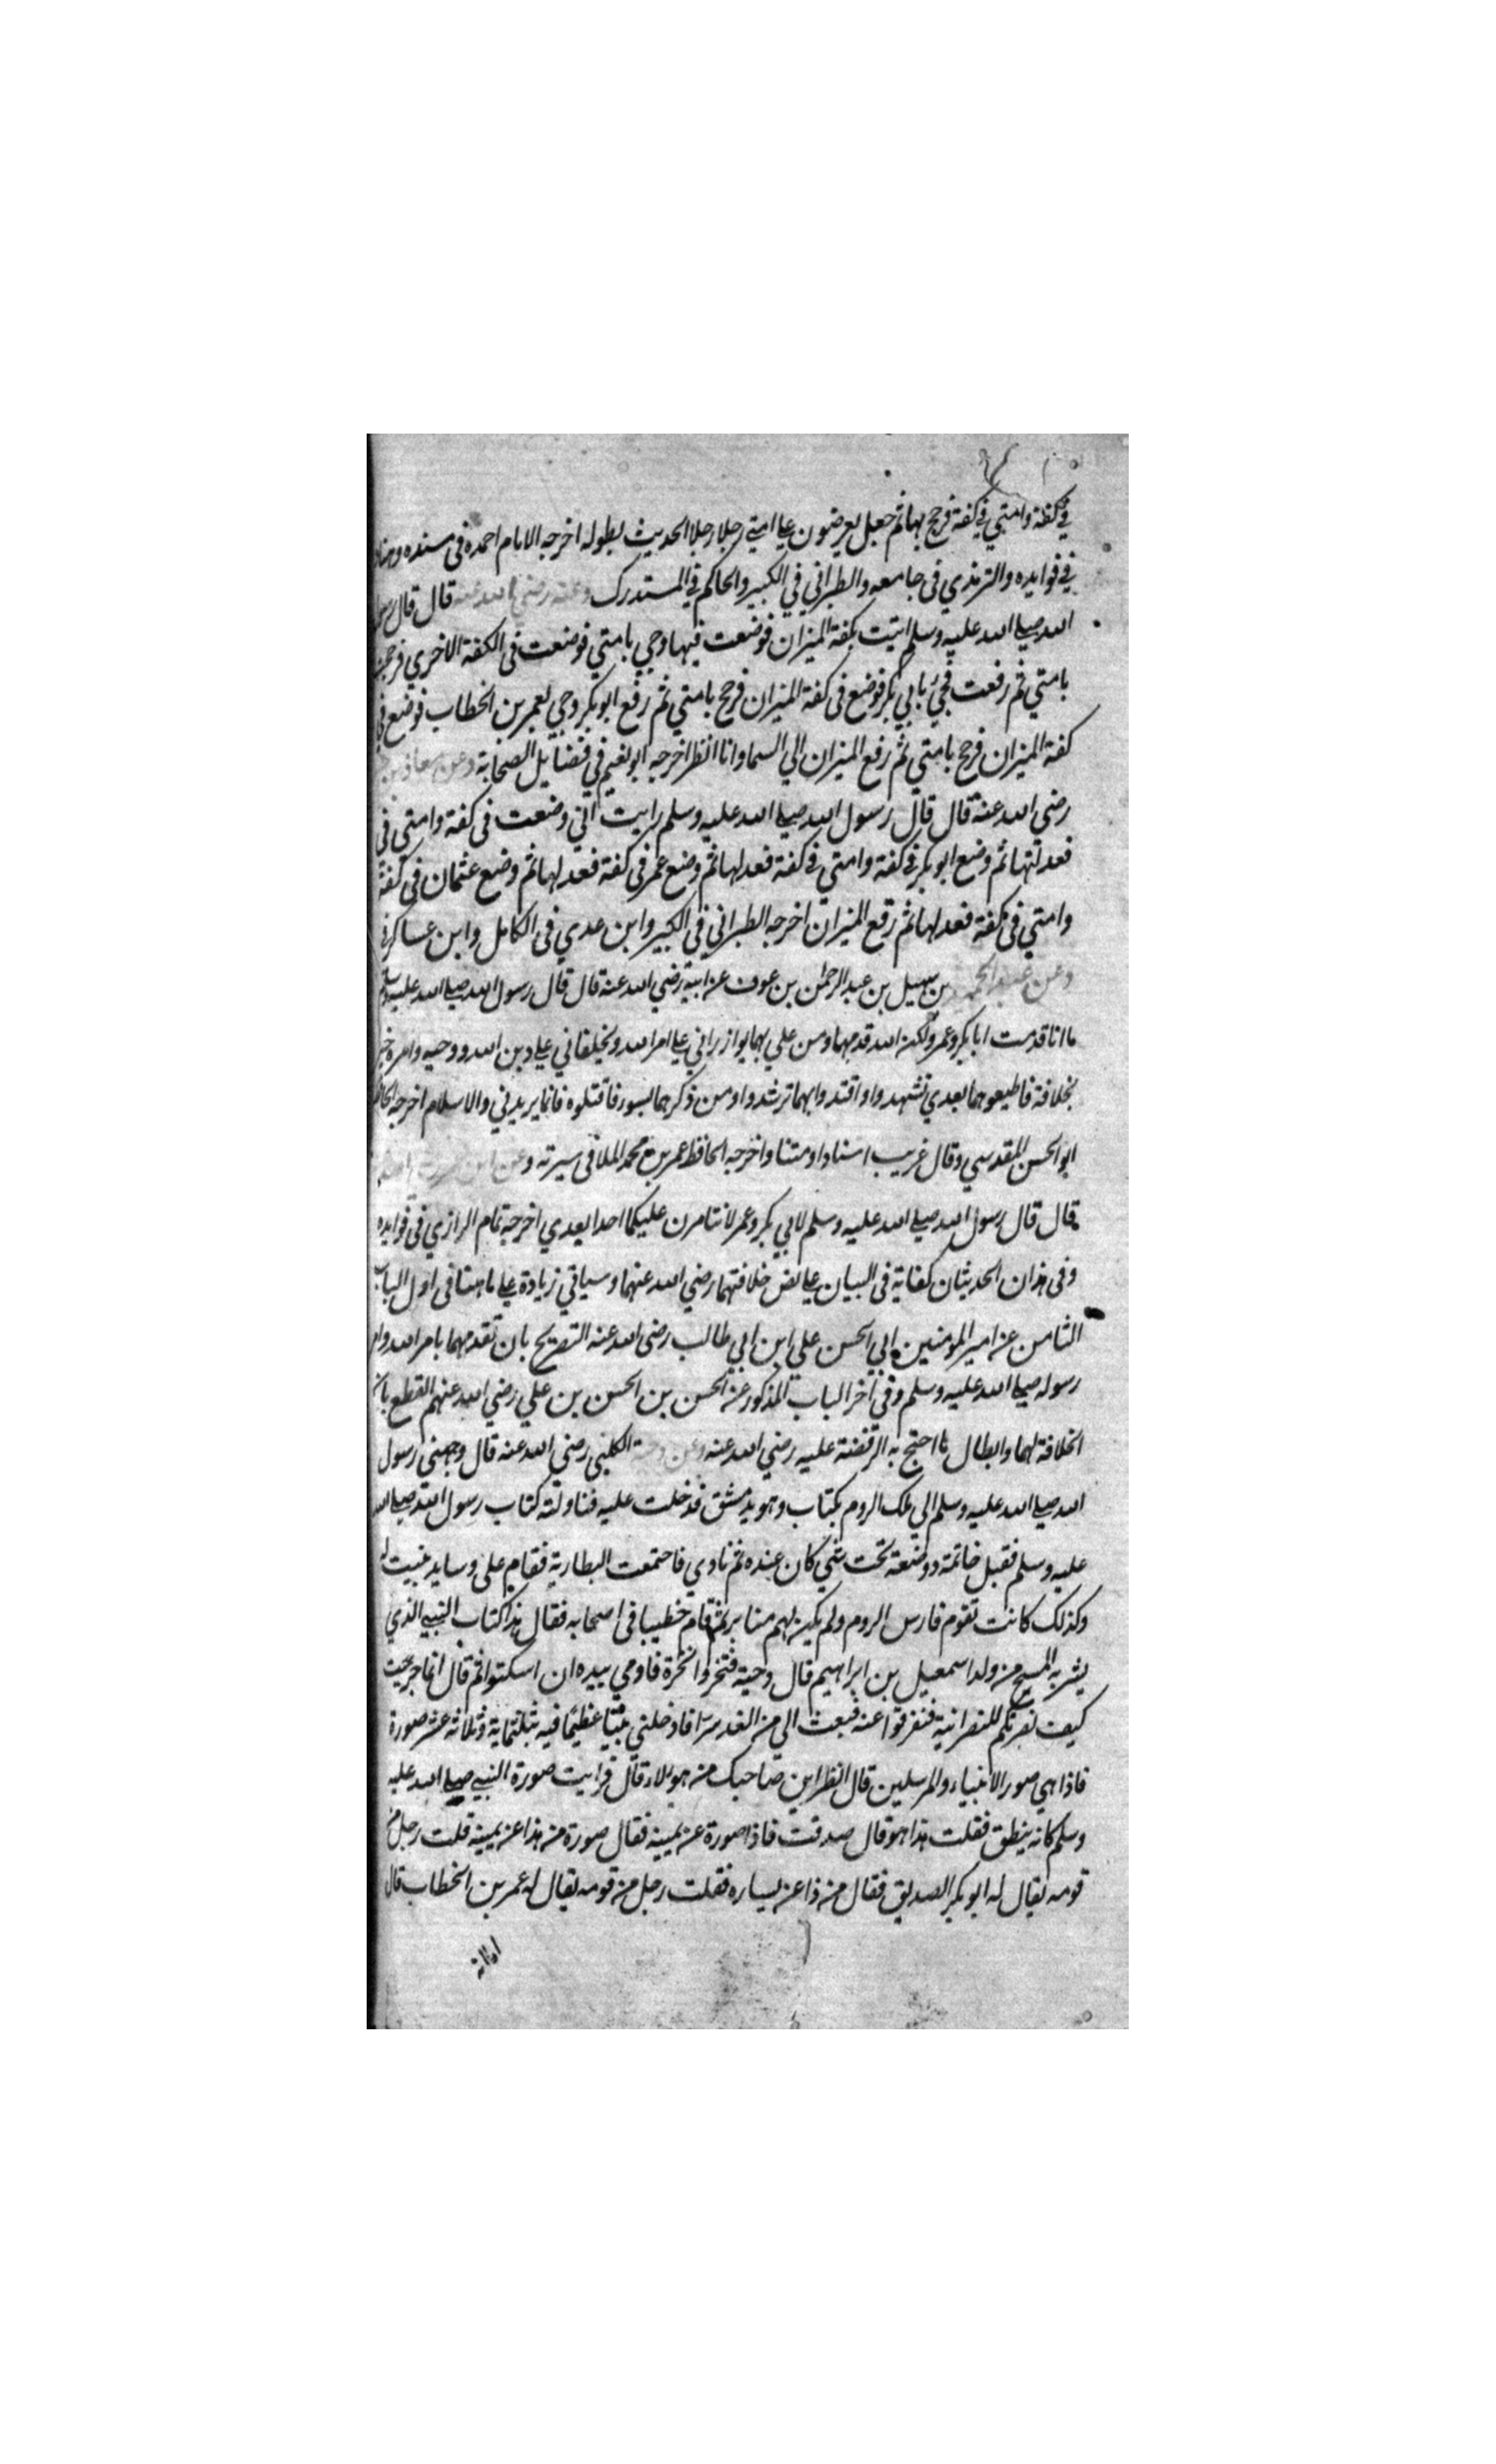 في كفة وامتي في كفة فرجح بها ثم جعل يعرضون علي امتي رجلا رجلا الحديث بطوله اخرجه الامام احمد في مسنده
في فوايده والترمذي في جامعه والطبراني في الكبير والحاكم في المستدرك وعنه رضي الله عنه قال قال رسول
الله صلي الله عليه وسلم اتيت بكفة الميزان فوضعت فيها وجي بامتي فوضعت في الكفة الاخري فرجحت
بامتي ثم رفعت فجئ بابي بكر فوضع في كفة الميزان فرجح بامتي ثم رفع ابو بكر وجي بعمر بن الخطاب فوضع في
كفة الميزان فرجح بامتي ثم رفع الميزان الي السما وانا انظر اخرجه ابو نعيم في فضايل الصحابة وعن معاذ بن
رضي الله عنه قال قال رسول الله صلي الله عليه وسلم رايت اني وضعت في كفة وامتي في
فعدلتها ثم وضع ابو بكر في كفة وامتي في كفة فعدلها ثم وضع عمر في كفة فعدلها ثم وضع عثمان في كفة
وامتي في كفة فعدلها ثم رفع الميزان اخرجه الطبراني في الكبير وابن عدي في الكامل وابن عساكر
وعن عبد بن سهيل بن عبد الرحمن بن عوف عن ابيه رضي الله عنه قال قال رسول الله صلي الله عليه وسلم
ما انا قدمت ابا بكر وعمر ولكن الله قدمهما ومن علي بهما يوازراني علي امر الله ويخلفاني علي دين الله ووحيه وامره خير
بخلافة فاطيعوهما بعدي تشهدوا واقتدوا بهما ترشدوا ومن ذكرهما بسوء فاقتلوه فانما يريدني والاسلام اخرجه الحافظ
ابو الحسن المقدسي وقال غريب اسنادا ومتنا واخرجه الحافظ عمر بن محمد الملا في سيرته وعن ابن
قال قال رسول الله صلي الله عليه وسلم لابي بكر وعمر لا يتامرن عليكما احد بعدي اخرجه تمام الرازي في فوايده
وفي هذان الحديثان كفاية في البيان علي نص خلافتهما رضي الله عنهما وسياتي زيادة علي ما هنا في اول الباب
الثامن عن امير المومنين ابي الحسن علي ابن ابي طالب رضي الله عنه التصريح بان تقدمهما بامر الله وامر
رسوله صلي الله عليه وسلم وفي آخر الباب المذكور عن الحسن بن الحسن بن علي رضي الله عنهم القطع بان
الخلافة لهما وابطال ما احتج به الرفضة عليه رضي الله عنه وعن دحية الكلبي رضي الله عنه قال وجهني رسول
الله صلي الله عليه وسلم الي ملك الروم بكتاب وهو بدمشق فدخلت عليه فناولته كتاب رسول الله صلي الله
عليه وسلم فقبل خاتمة ووضعه تحت شي كان عنده ثم نادي فاجتمعت البطارية فقام علي وسايد بنيت له
وكذلك كانت تقوم فارس الروم ولم يكن لهم منابر ثم قام خطيبا في اصحابه فقال هذا كتاب النبي الذي
بشر به المسيح من ولد اسمعيل بن ابراهيم قال دحية فنخروا نخرة فاومي بيده ان اسكتوا ثم قال انما جربت
كيف نصرتكم للنصرانية فتفرقوا عنه فبعث الي من الغد سرا فادخلني بيتا عظيما فيه ثلثماية وثلاثة عشر صورة
فاذا هي صور الانبياء والمرسلين قال انظر اين صاحبك من هولاء قال فرايت صورة النبي صلي الله عليه
وسلم كانه ينطق فقلت هذا هو قال صدقت فاذا صورة عن يمينه فقال صورة من هذا عن يمينه قلت رجل من
قومه يقال له ابو بكر الصديق فقال من ذا عن يساره فقلت رجل من قومه يقال له عمر بن الخطاب قال